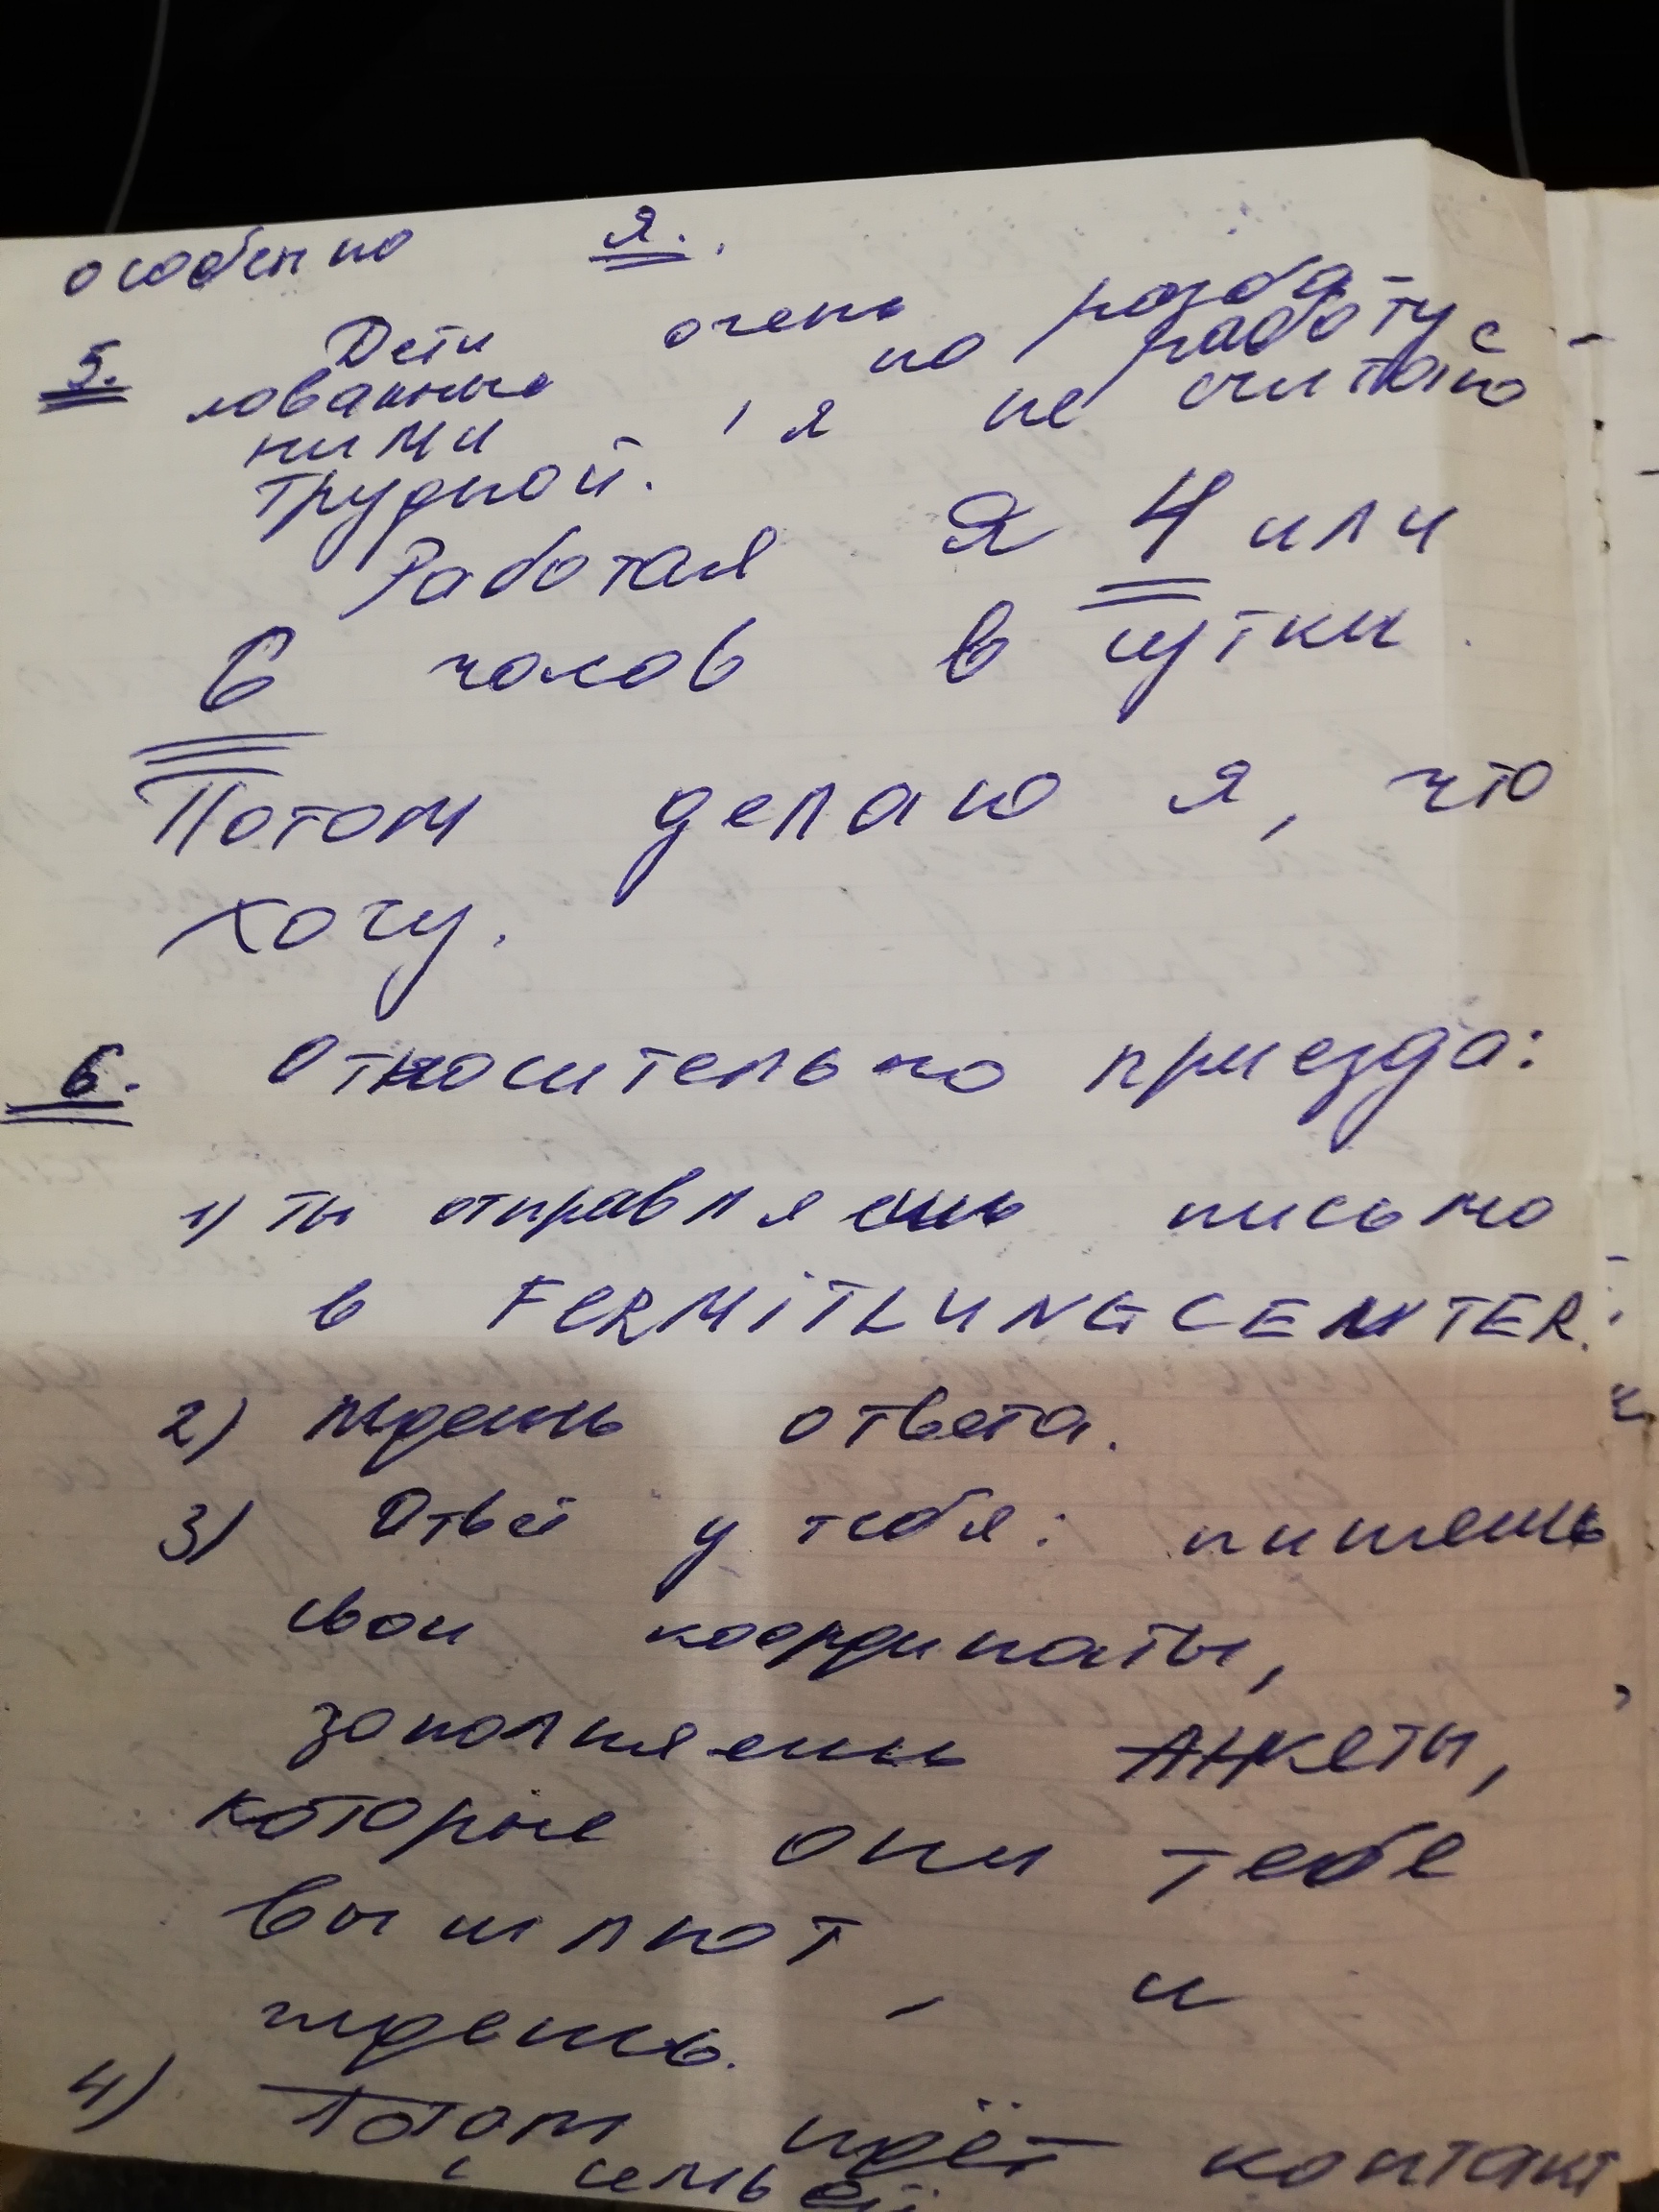 особенно я.
5. Дети очень разба-
лованные, но работу с
ними, я не считаю
трудной.
Работая я 4 или
6 часов в сутки.
Потом делаю я, что
хочу.
6. Относительно приезда:
1) ты отправляешь письмо
в FERMITLUNGCENTER.
2) ждешь ответа.
3) Ответ у тебя: пишешь
свои координаты,
заполняешь АНКеты,
которые они тебе
вышлют, и
ждешь.
4) Потом идёт контакт
с семьей